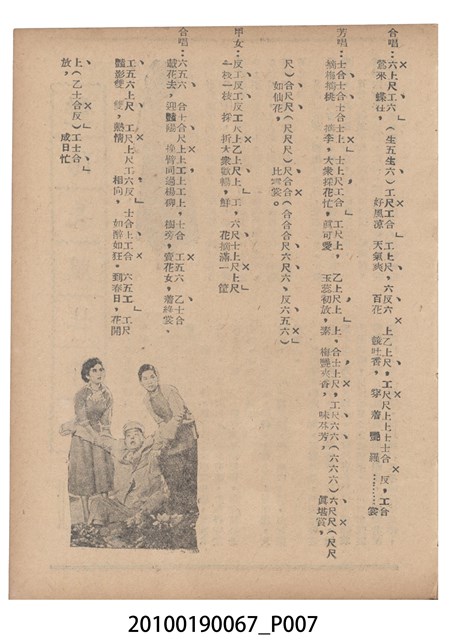 合唱：六上尺工六（生五生六）工尺工合 工上尺，六反六 上乙上尺，工尺尺上上士士合 反，工合
鶯來 蝶往， 好風凉 天氣爽 百花 競吐香， 穿 着 艷 羅………裳
芳唱：士合士合士合士上 士上尺工合 工尺上， 乙上尺上 上，合士上尺，工尺六六（六六六）六尺尺（尺尺
摘梅摘桃 摘李，大衆採花忙，眞可愛 玉蕊初放，素 梅艷爽香， 味芬芳， 眞堪賞，
尺）合尺尺（尺尺尺）尺合合（合合合尺六尺六，反六五六）
如仙花， 比裳。
甲女：反工反工反工尺上乙上尺上，工，六尺士上尺上尺
一枝一枝，採，折大衆歌唱，鮮 花摘滿一筐
合唱：六五六 合士合尺上工上上，士合 工五六 乙士合
趁花去，迎艷陽 挽臂同過楊柳，樹旁，賣花女，着綠裳、
工五六上尺 工尺上尺工六反 士合上工合 六五工 工尺
艷影雙 雙，熱情 相向， 如醉如狂。到春日，花開
上（乙士合反）工士合
放， 成日忙
20100190067_P007